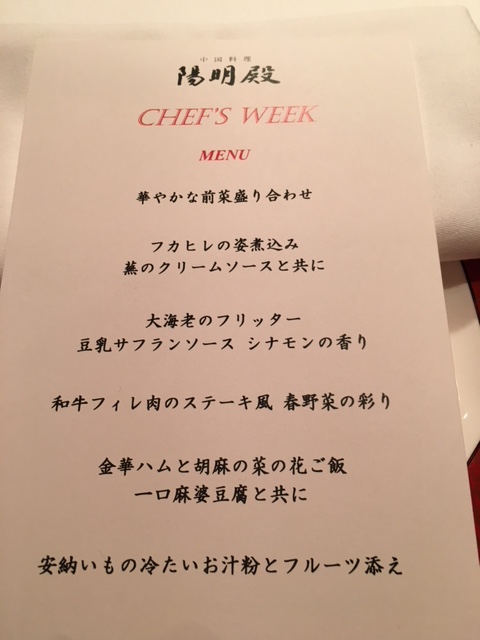 中国料理
陽明殿
CHEF'S WEEK
MENU
華やかな前菜盛り合わせ
フカヒレの姿煮込み
蕪のクリームソースと共に
大海老のフリッター
豆乳サフランソース シナモンの香り
和牛フィレ肉のステーキ風 春野菜の彩り
金華ハムと胡麻の菜の花ご飯
一口麻婆豆腐と共に
安納いもの冷たいお汁粉とフルーツ添え